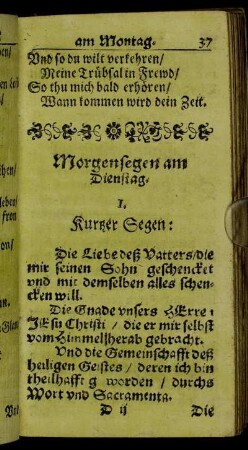 am Montag. 37
Vnd so du wilt verkehren/
Meine Trübsal in Frewd/
So thu mich bald erhören/
Wann kommen wird dein Zeit.
Morgensegen am
Dienstag.
1.
Kurtzer Segen:
Die Liebe deß Vatters/die
mir seinen Sohn geschencket
vnd mit demselben alles schen-
cken will.
Die Gnade vnsers HErrn
JEsu Christi / die er mir selbst
vom Himmel herab gebracht.
Vnd die Gemeinschafft deß
heiligen Geistes / deren ich bin
theilhafftg worden / durchs
Wort vnd Sacramenta.
D ij Die